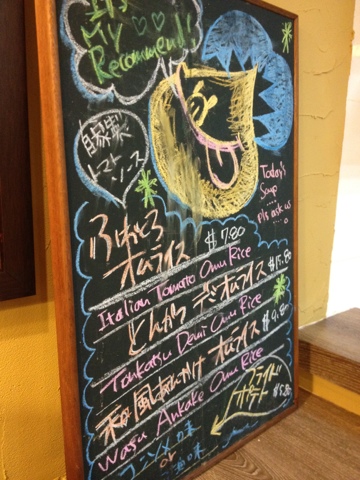 It's
My
Recommend!
自家製
トマトソース
Today's
Soup
....
Pls ask us
ふわとろ
オムライス $7.80
Italian Tomato Omu Rice
とんかつ デミオムライス $15.80
Tonkatsu Demi Omu Rice
和風あんかけ オムライス $9.80
Wafu Ankake Omu Rice
フライド
ポテト
$5.80
コンソメ味
or